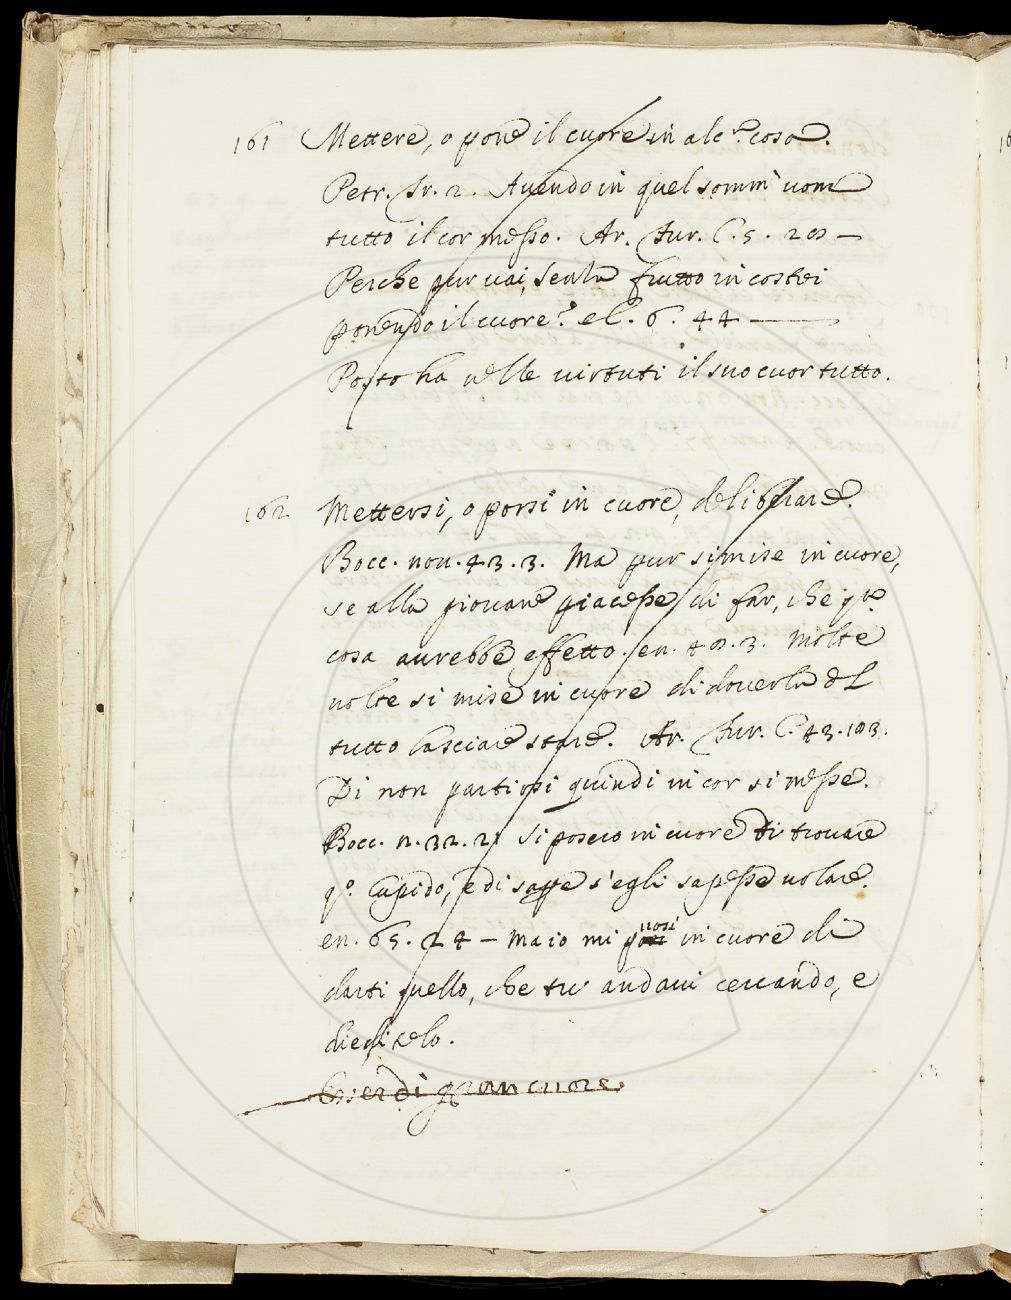 161 Mettere, o pone il cuore in alc.ª cosa.
Petr. Tr. 2. Avendo in quel somm' uom
tutto il cor messo. Ar. Fur. C. 5. 20 —
Perche pur vai, senza frutto in costei
ponendo il cuore? el. 6. 44 —
Posto ha nelle virtuti il suo cuor tutto.
162 Mettersi, o porsi in cuore, deliberare.
Bocc. nov. 43. 3. Ma pur si mise in cuore,
se alla giovane piacesse di far, che q.ta
cosa avrebbe effetto. en. 3. Molte
volte si mise in cuore di doverla del
tutto lasciare stare. Ar. Fur. C. 43.
Di non partirsi quindi in cor si messe.
Bocc. n. 32. 21 si posero in cuore di trovare
q.o Cupido, e di sappe s'egli sapesse volare.
en. 65. 24 — Ma io mi posi in cuore di
darti quello, che tu andavi cercando, e
dieditelo.
Esser di gran cuore.